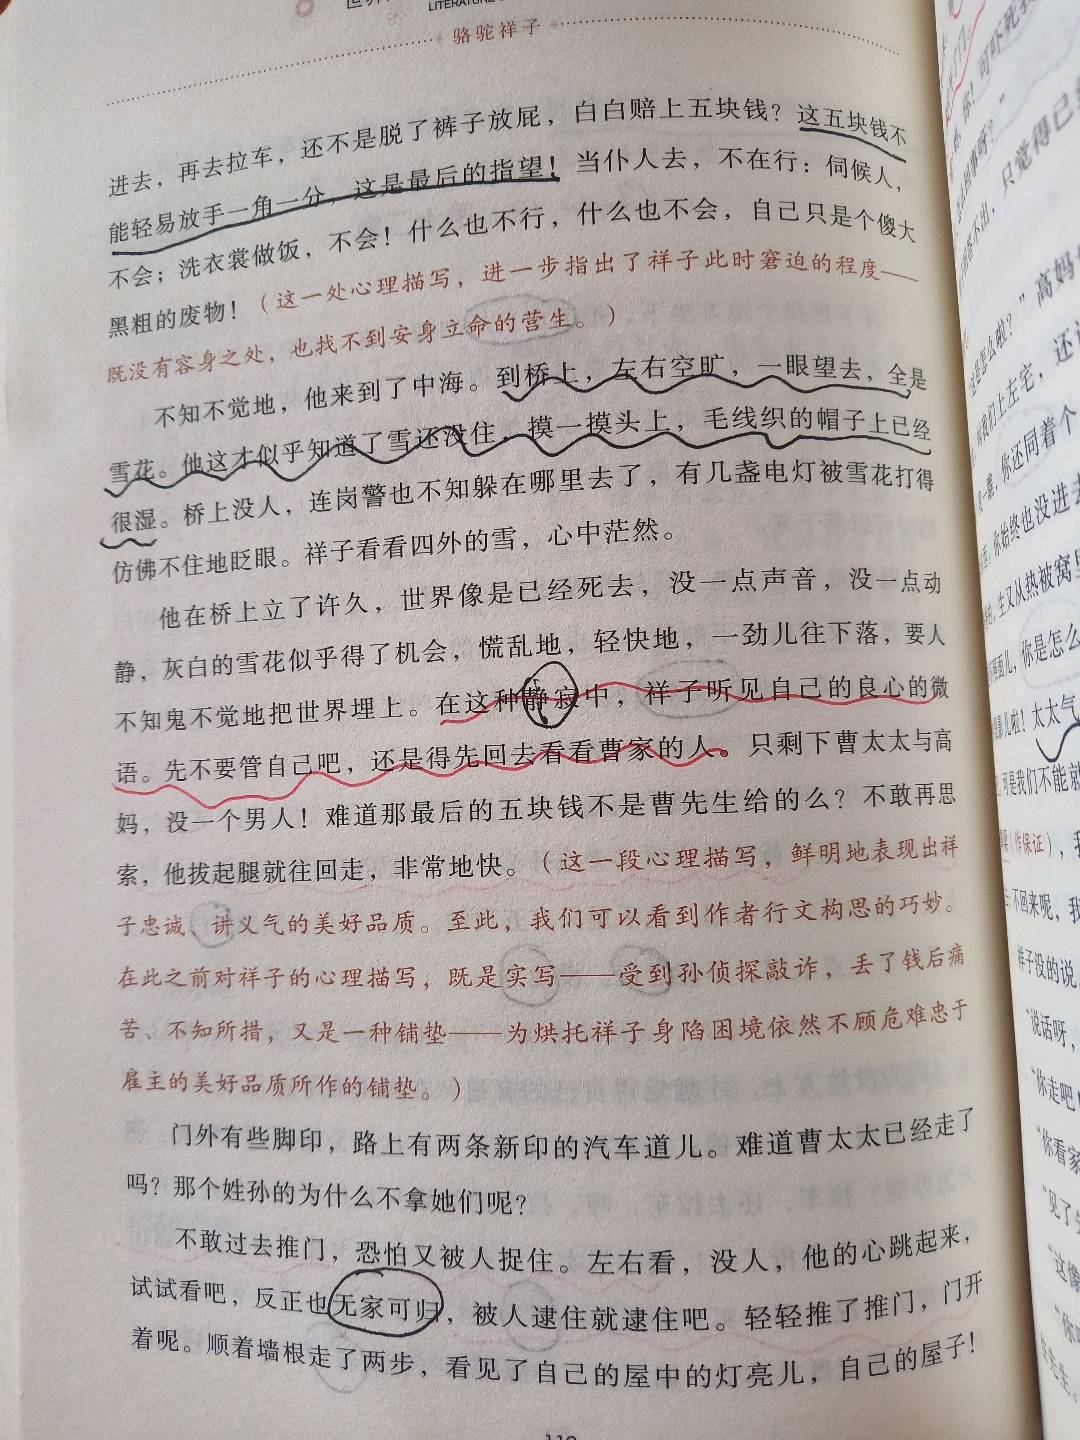 骆驼祥子
进去，再去拉车，还不是脱了裤子放屁，白白赔上五块钱？这五块钱不
能轻易放手一角一分，这是最后的指望！当仆人去，不在行：伺候人，
不会；洗衣裳做饭，不会！什么也不行，什么也不会，自己只是个傻大
黑粗的废物！（这一处心理描写，进一步指出了祥子此时窘迫的程度——
既没有容身之处，也找不到安身立命的营生。）
不知不觉地，他来到了中海。到桥上，左右空旷，一眼望去，全是
雪花。他这才似乎知道了雪还没住，摸一摸头上，毛线织的帽子上已经
很湿。桥上没人，连岗警也不知躲在哪里去了，有几盏电灯被雪花打得
仿佛不住地眨眼。祥子看看四外的雪，心中茫然。
他在桥上立了许久，世界像是已经死去，没一点声音，没一点动
静，灰白的雪花似乎得了机会，慌乱地，轻快地，一劲儿往下落，要人
不知鬼不觉地把世界埋上。在这种静寂中，祥子听见自己的良心的微
语。先不要管自己吧，还是得先回去看看曹家的人。只剩下曹太太与高
妈，没一个男人！难道那最后的五块钱不是曹先生给的么？不敢再思
索，他拔起腿就往回走，非常地快。（这一段心理描写，鲜明地表现出祥
子忠诚、讲义气的美好品质。至此，我们可以看到作者行文构思的巧妙。
在此之前对祥子的心理描写，既是实写——受到孙侦探敲诈，丢了钱后痛
苦、不知所措，又是一种铺垫——为烘托祥子身陷困境依然不顾危难忠于
雇主的美好品质所作的铺垫。）
门外有些脚印，路上有两条新印的汽车道儿。难道曹太太已经走了
吗？那个姓孙的为什么不拿她们呢？
不敢过去推门，恐怕又被人捉住。左右看，没人，他的心跳起来，
试试看吧，反正也无家可归，被人逮住就逮住吧。轻轻推了推门，门开
着呢。顺着墙根走了两步，看见了自己的屋中的灯亮儿，自己的屋子！
只觉得已
高妈
你还同着个
你始终也没进去
生又从热被窝里
你是怎么
太太气
可是我们不能就
（作保证），我
不回来呢，我
祥子没的说
“说话呀，
“你走吧！
“你看家
“见了
“这像